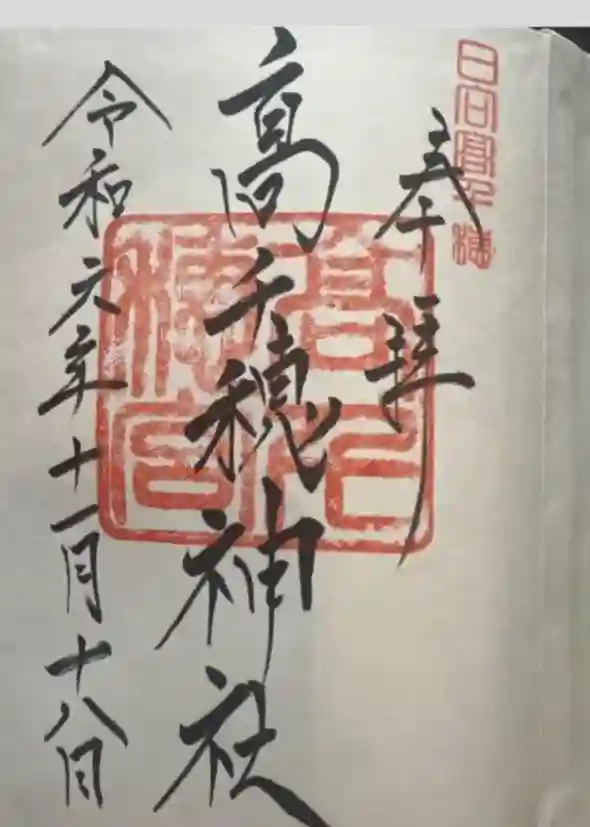 日向高千穂
奉拝
高千穂神社
高千穂宮
令和六年十一月十八日